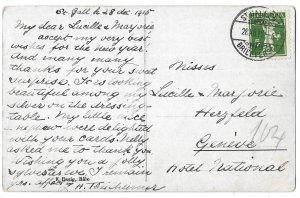 St. Gall le 28 dec 1915
My dear Lucille & Marjorie
accept my very best
wishes for the new year.
And many many
thanks for your sweet
surprise. It is looking
beautiful among my
silver on the dressing-
table. My little niece
& nephew were delighted
with your cards. Nelly
asked me to thank you
Wishing you a jolly
sylvester I remain
yrs. affect.
Misses
Lucille & Marjorie
Herzfeld
Genève
Hotel National
164
ST. GALLEN
BRIEF